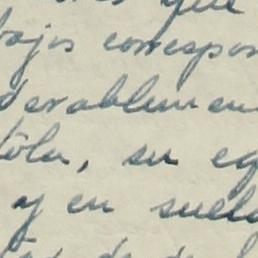 que
bajos correspon
derablemen
tôla, su eq
y en suelo